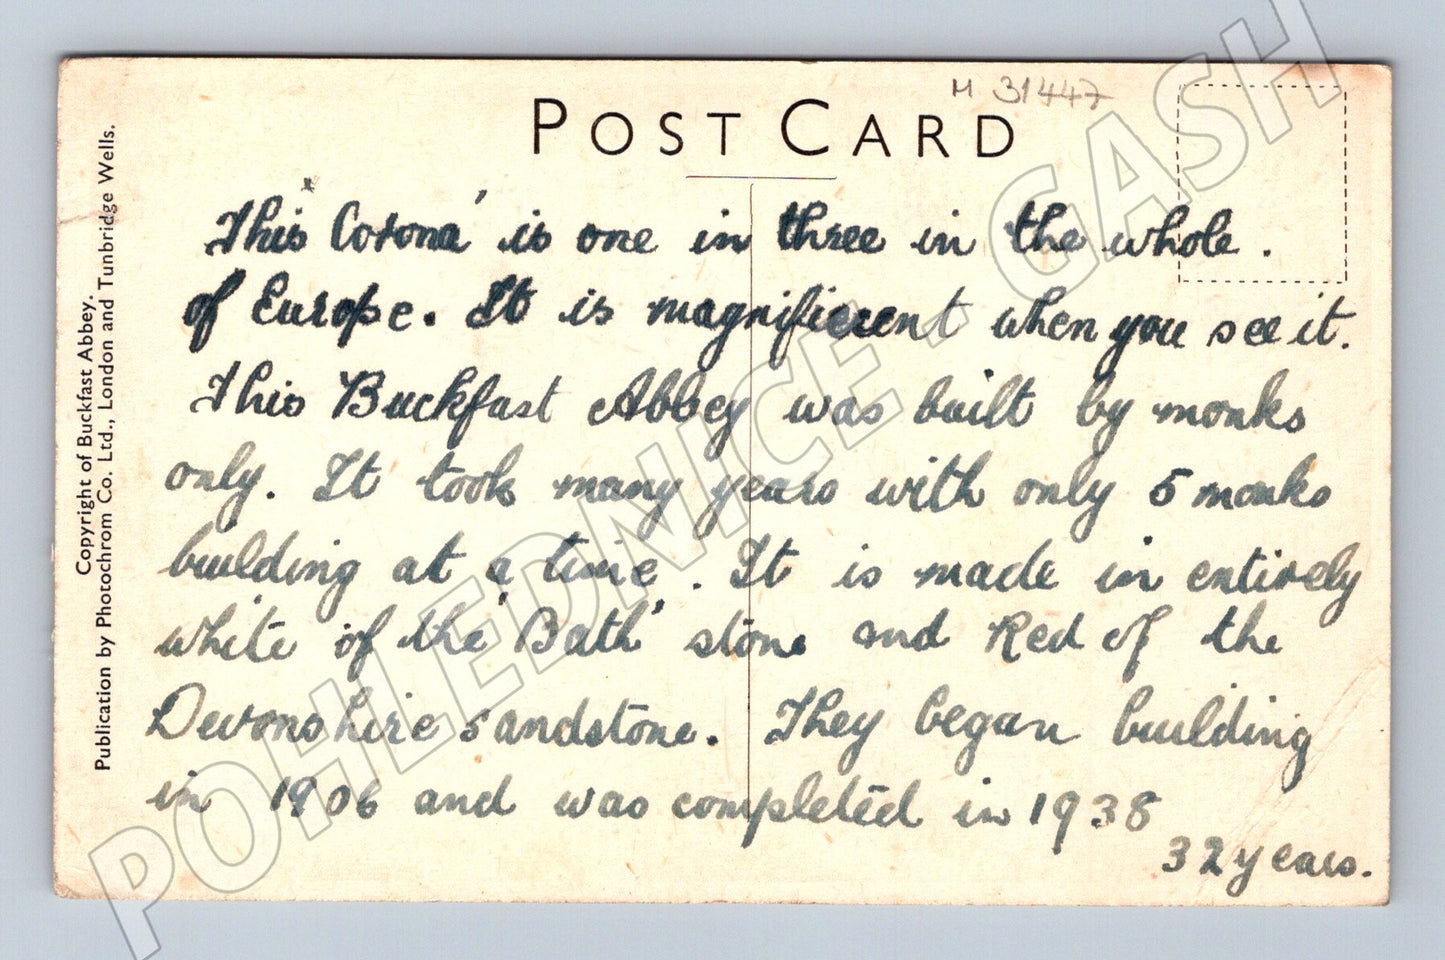 M 31447
POST CARD
This 'Corona' is one in three in the whole.
of Europe. It is magnificent when you see it.
This Buckfast Abbey was built by monks
only. It took many years with only 5 monks
building at a time. It is made in entirely
white of the 'Bath' stone and Red of the
Devonshire sandstone. They began building
in 1906 and was completed in 1938
32 years.
Copyright of Buckfast Abbey.
Publication by Photochrom Co. Ltd., London and Tunbridge Wells.
POHLEDNICE - GASH